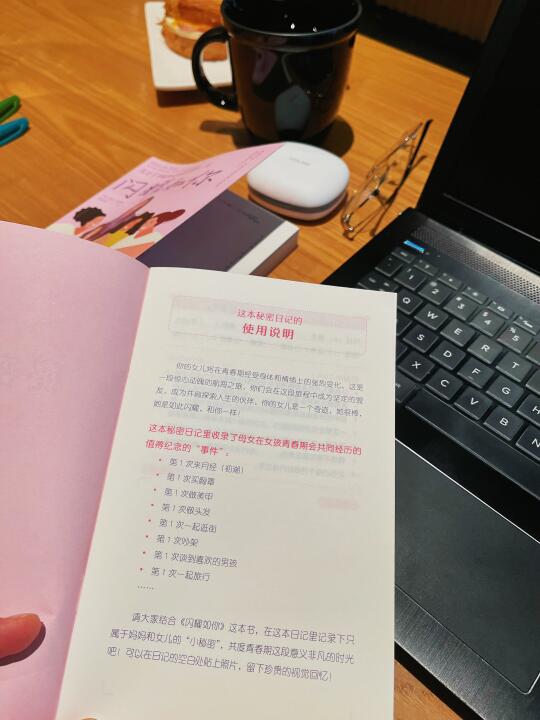 这本秘密日记的
使用说明
你的女儿将在青春期经受身体和情绪上的强烈变化，这是
一段惊心动魄的前局之旅，你们会在这段旅程中成为坚定的盟
友，成为共同探索人生的伙伴。你的女儿是一个奇迹，她很棒，
她是如此闪耀，和你一样！
这本秘密日记里收录了母女在女孩青春期会共同经历的
值得纪念的“事件”：
• 第1次来月经（初潮）
• 第1次买胸罩
• 第1次做美甲
• 第1次做头发
• 第1次一起逛街
• 第1次吵架
• 第1次谈到喜欢的男孩
• 第1次一起旅行
……
请大家结合《闪耀如你》这本书，在这本日记里记录下只
属于妈妈和女儿的“小秘密”，共度青春期这段意义非凡的时光
吧！可以在日记的空白处贴上照片，留下珍贵的视觉回忆！
1
2
3
4
5
Q
W
E
R
T
A
S
D
F
G
Z
X
C
V
B